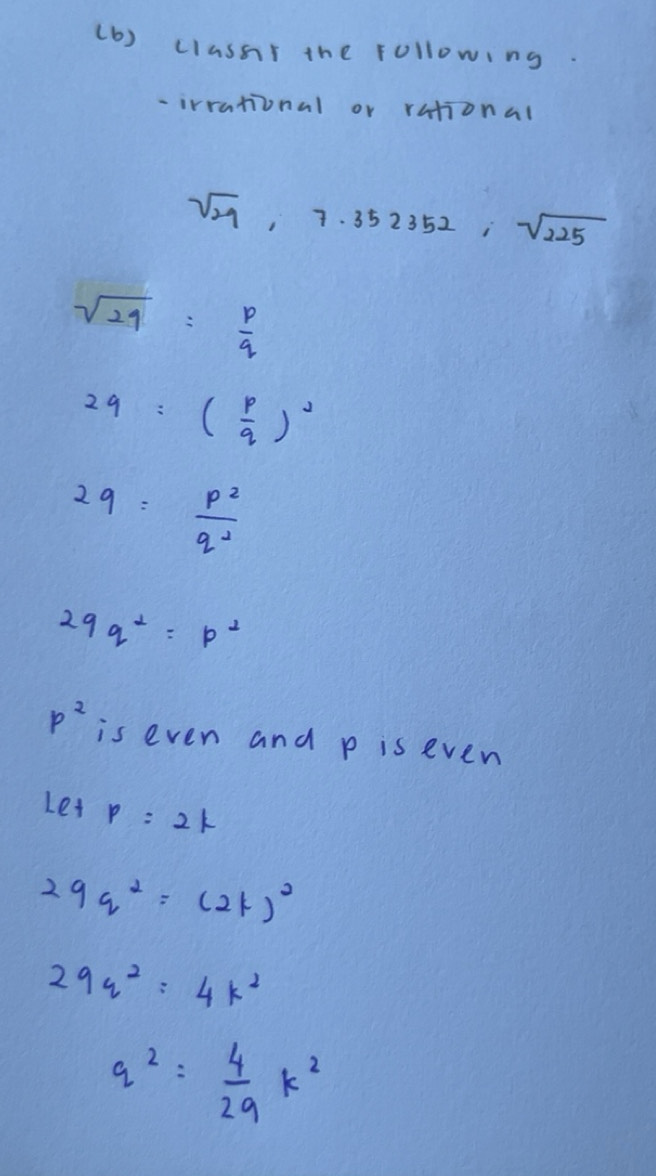 (b) classify the following .
- irrational or rational
√29 , 7.352352 , √225
√29 = p/q
29 = (p/q)²
29 = p²/q²
29q² = p²
p² is even and p is even
Let p = 2k
29q² = (2k)²
29q² = 4k²
q² = 4/29 k²